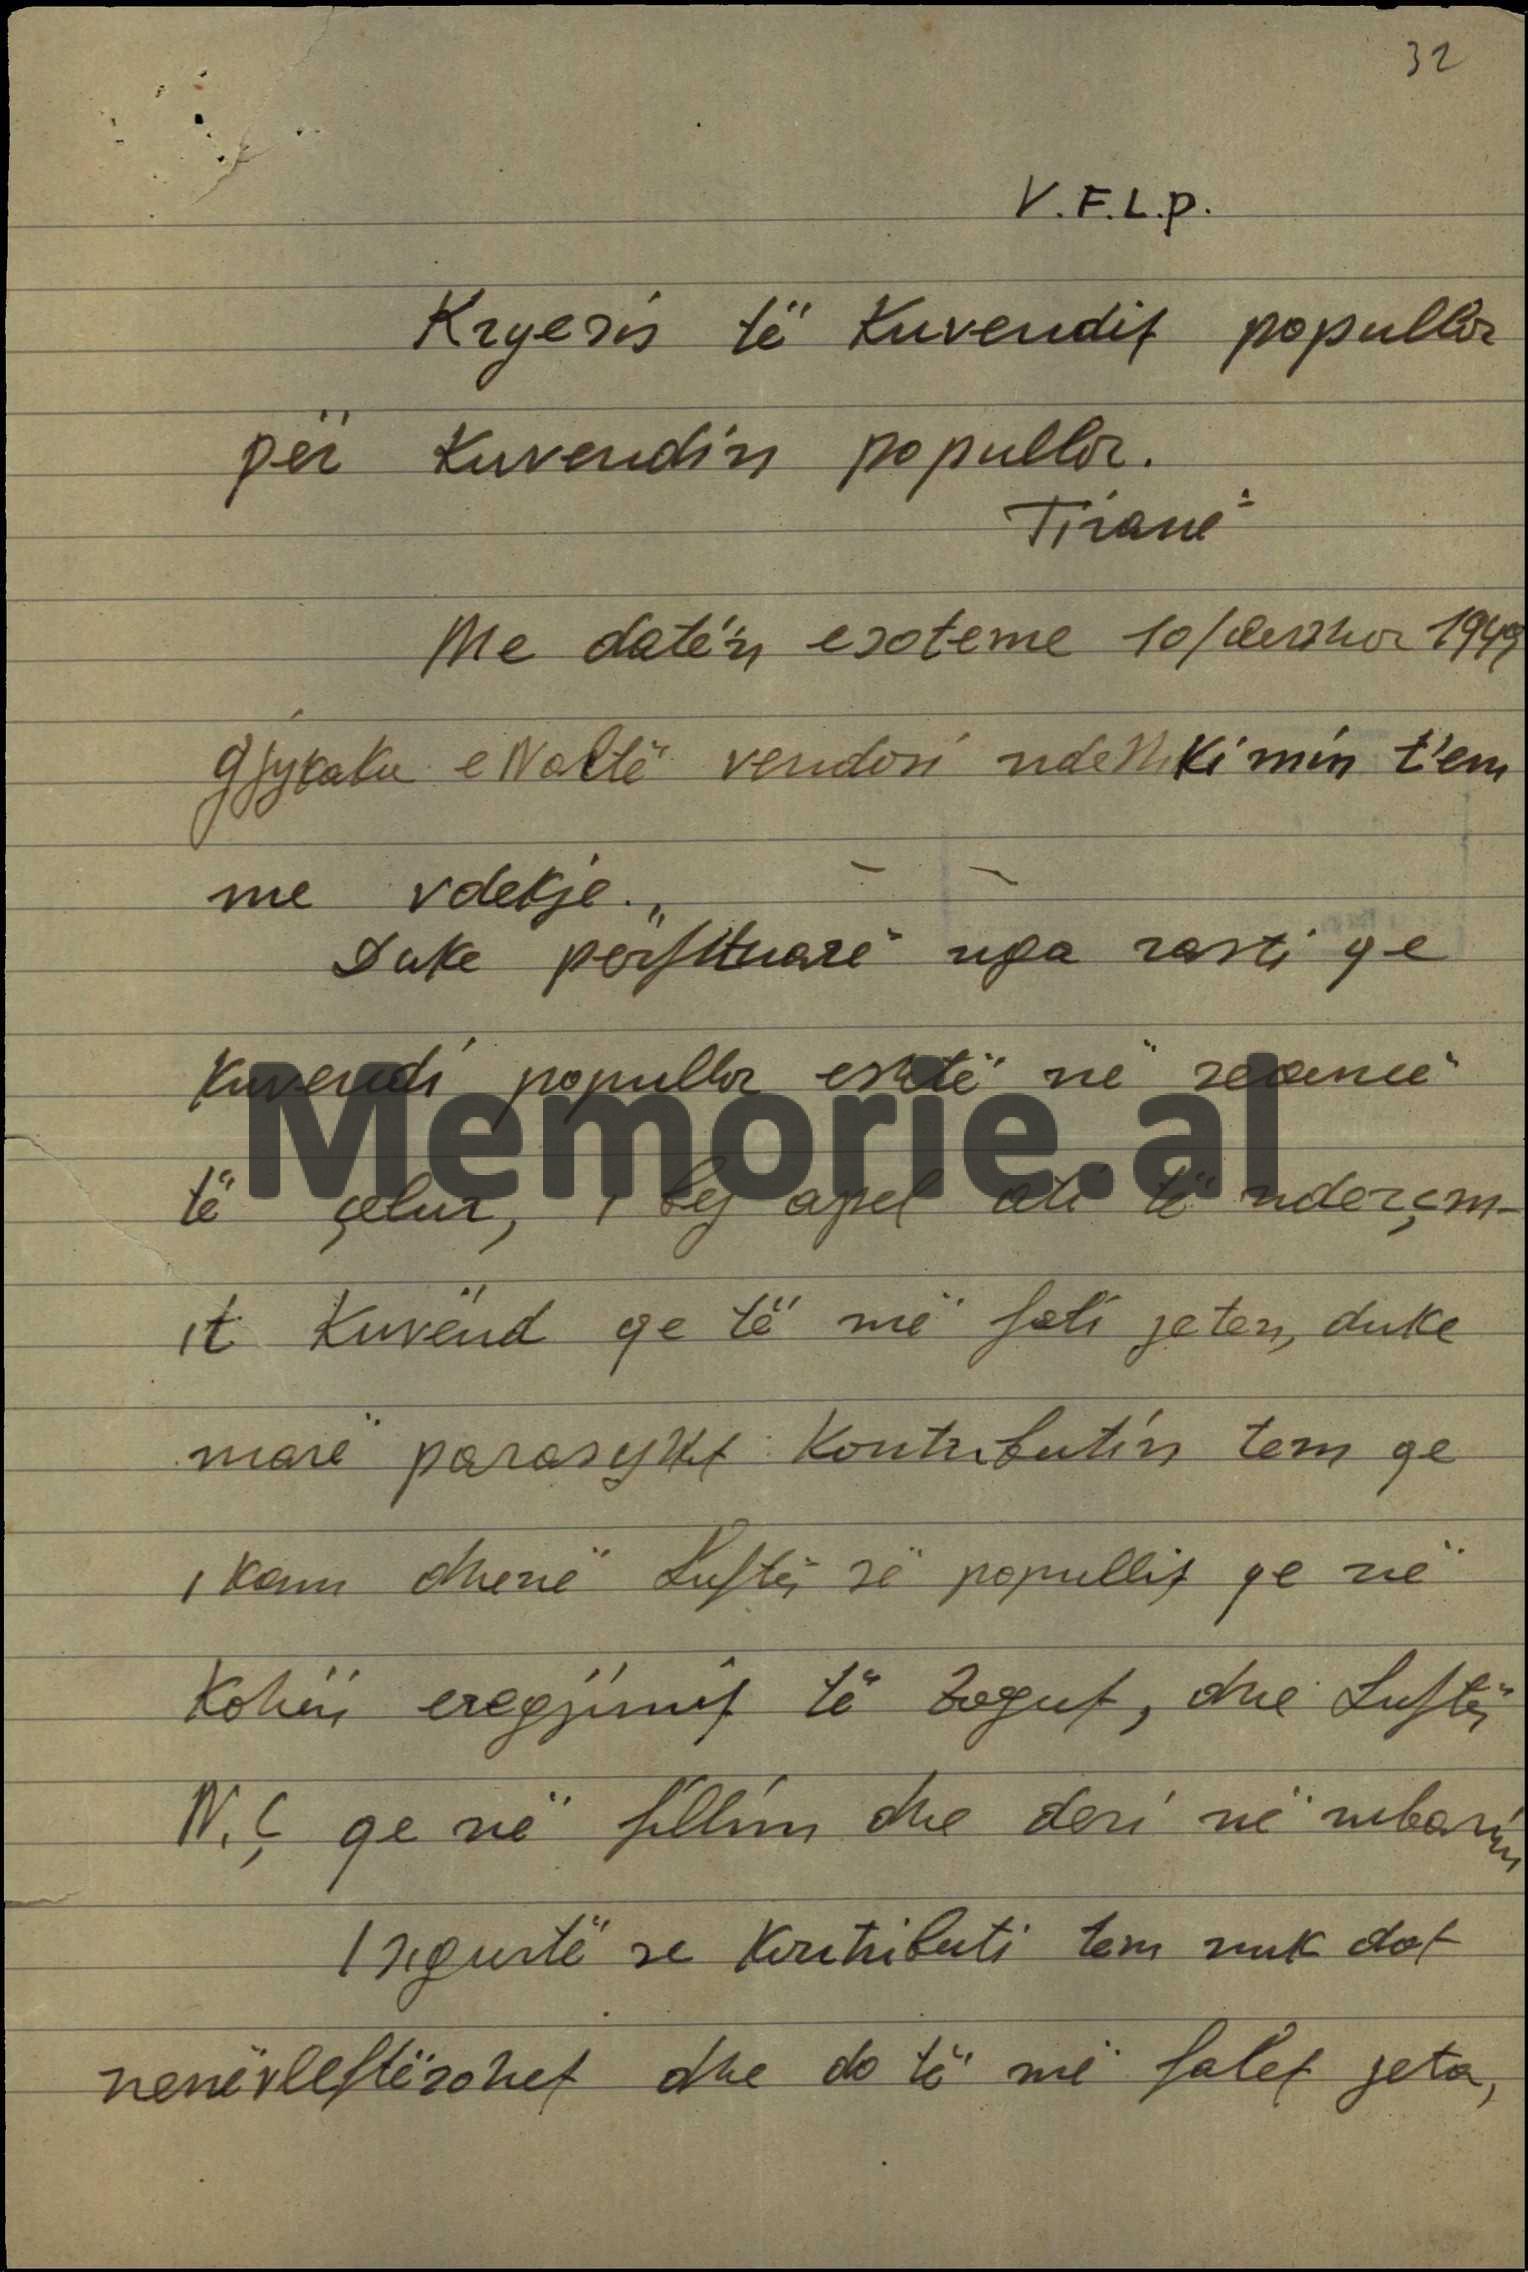 32
V.F.L.p.
Kryesis të Kuvendit popullor
për Kuvendin popullor.
Tiranë
Me datën esoteme 10/dershor 1949
gjykaku e Naltë vendosi ndeshkimin t'em
me vdekje.
Duke përfituarë nga rasti qe
Kuvendi popullor eshtë në seancë
Memorie.al
të çelur, i bej apel ati të nderçm-
it Kuvënd qe të më fali jeten, duke
marë parasysht Kontributin tem qe
i kam dhenë Luftës së popullit qe në
Kohën eregjimit të Zogut, dhe Luftës
N.Ç qe në fillim dhe deri në mbarim
I sigurtë se Kontributi tem nuk dot
nenëvleftësohet dhe do të më falet jeta,